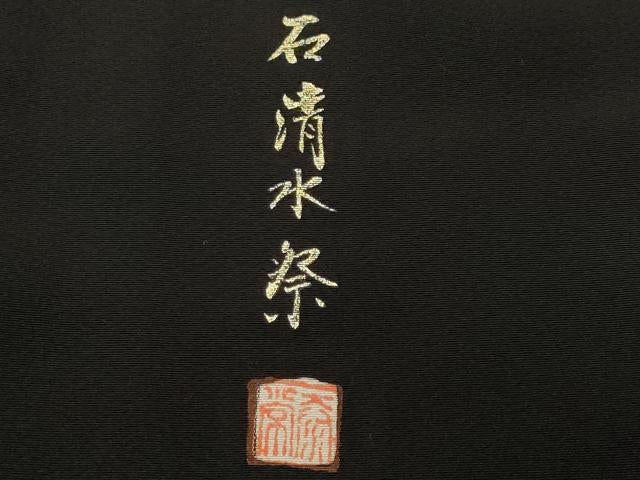 石清水祭